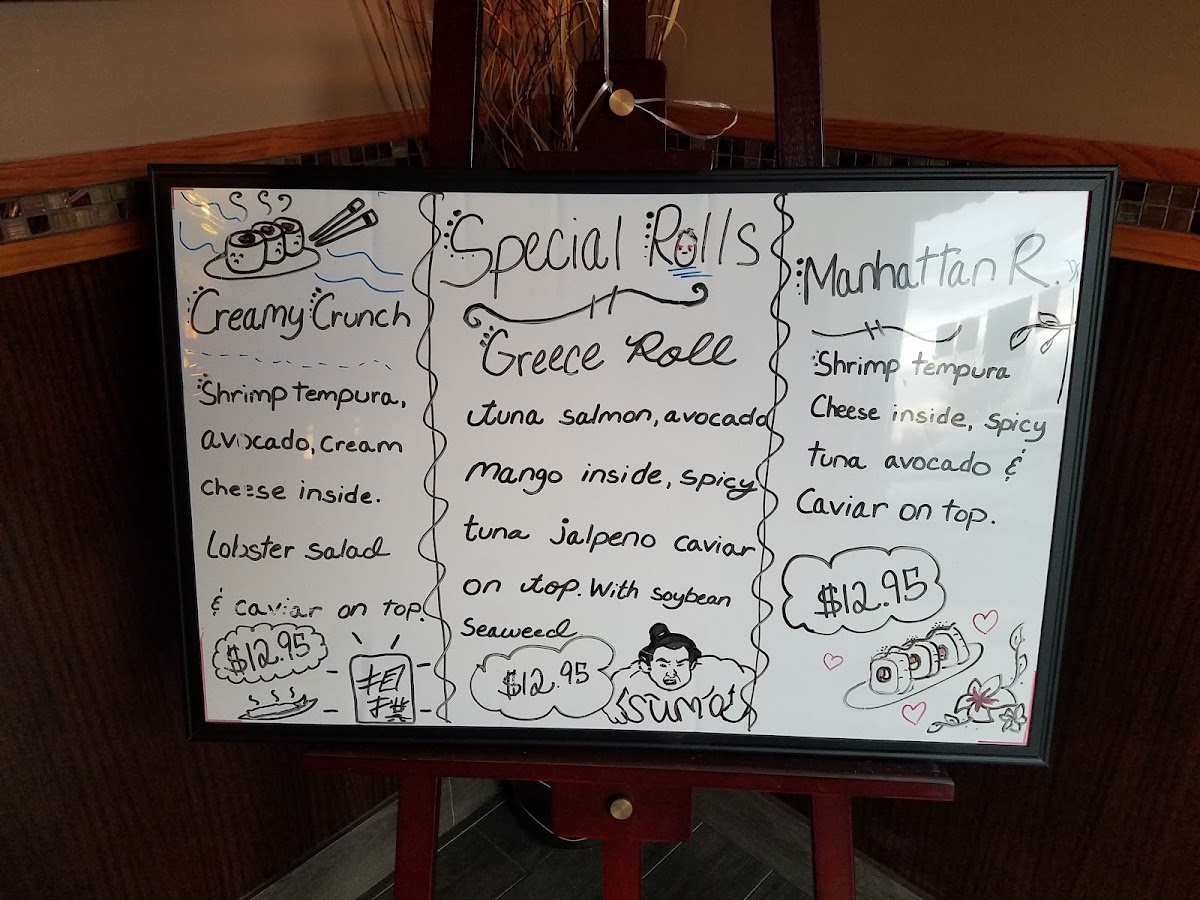 Creamy Crunch
Shrimp tempura,
avocado, cream
cheese inside.
Lobster salad
& caviar on top.
$12.95
Special Rolls
Greece Roll
tuna salmon, avocado
mango inside, spicy
tuna jalpeno caviar
on top. With soybean
Seaweed
$12.95
Sumo
Manhattan R.
Shrimp tempura
Cheese inside, spicy
tuna avocado &
Caviar on top.
$12.95